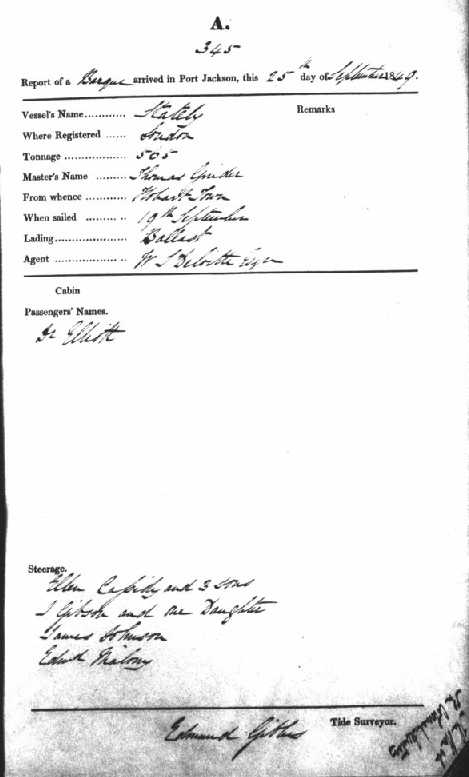 A.
345
Report of a Barque arrived in Port Jackson, this 25th day of September 1849.
Vessel's Name Stately
Remarks
Where Registered London
Tonnage 505
Master's Name Thomas Ginder
From whence Hobart Town
When sailed 19th September
Lading Ballast
Agent W S Deloitte Esqre
Cabin
Passengers' Names.
Dr Elliott
Steerage.
Ellen Cassidy and 3 sons
J Gibson and one Daughter
James Johnson
Edwd Malony
Tide Surveyor.
Edmund